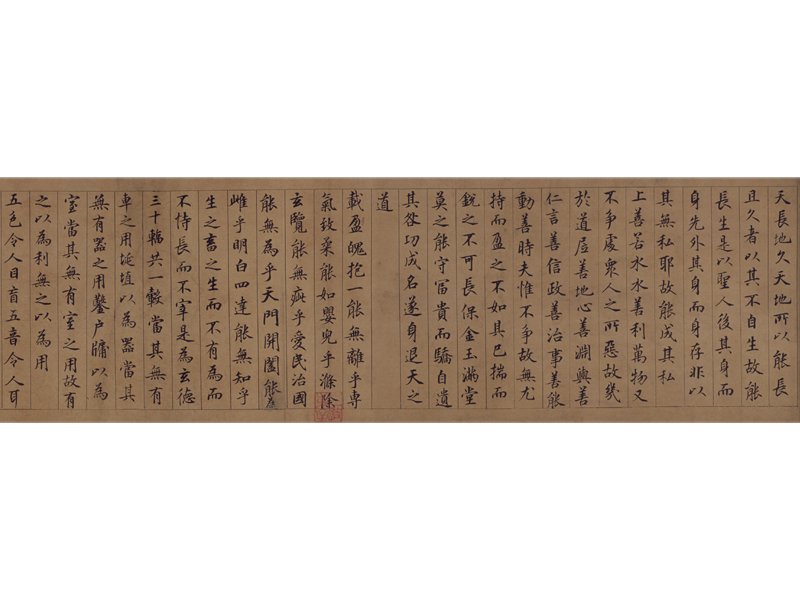 天長地久天地所以能長
且久者以其不自生故能
長生是以聖人後其身而
身先外其身而身存非以
其無私耶故能成其私
上善若水水善利萬物又
不爭處眾人之所惡故幾
於道居善地心善淵與善
仁言善信政善治事善能
動善時夫惟不爭故無尤
持而盈之不如其已揣而
銳之不可長保金玉滿堂
莫之能守富貴而驕自遺
其咎功成名遂身退天之
道
載盈魄抱一能無離乎專
氣致柔能如嬰兒乎滌除
玄覽能無疵乎愛民治國
能無為乎天門開闔能為
雌乎明白四達能無知乎
生之畜之生而不有為而
不恃長而不宰是為玄德
三十輻共一轂當其無有
車之用埏埴以為器當其
無有器之用鑿户牖以為
室當其無有室之用故有
之以為利無之以為用
五色令人目盲五音令人耳